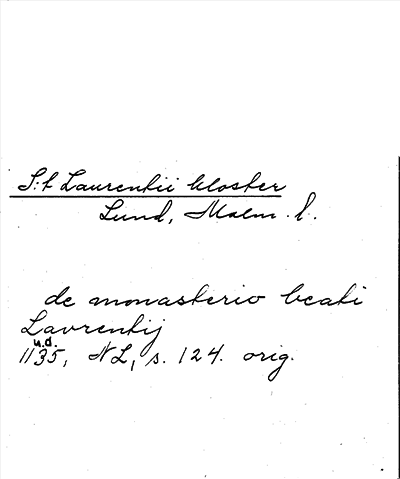 S:t Laurentii kloster
Lund, Malm. l.
de monasterio beati
Laurentij
u.d.
1135, NL, s. 124. orig.